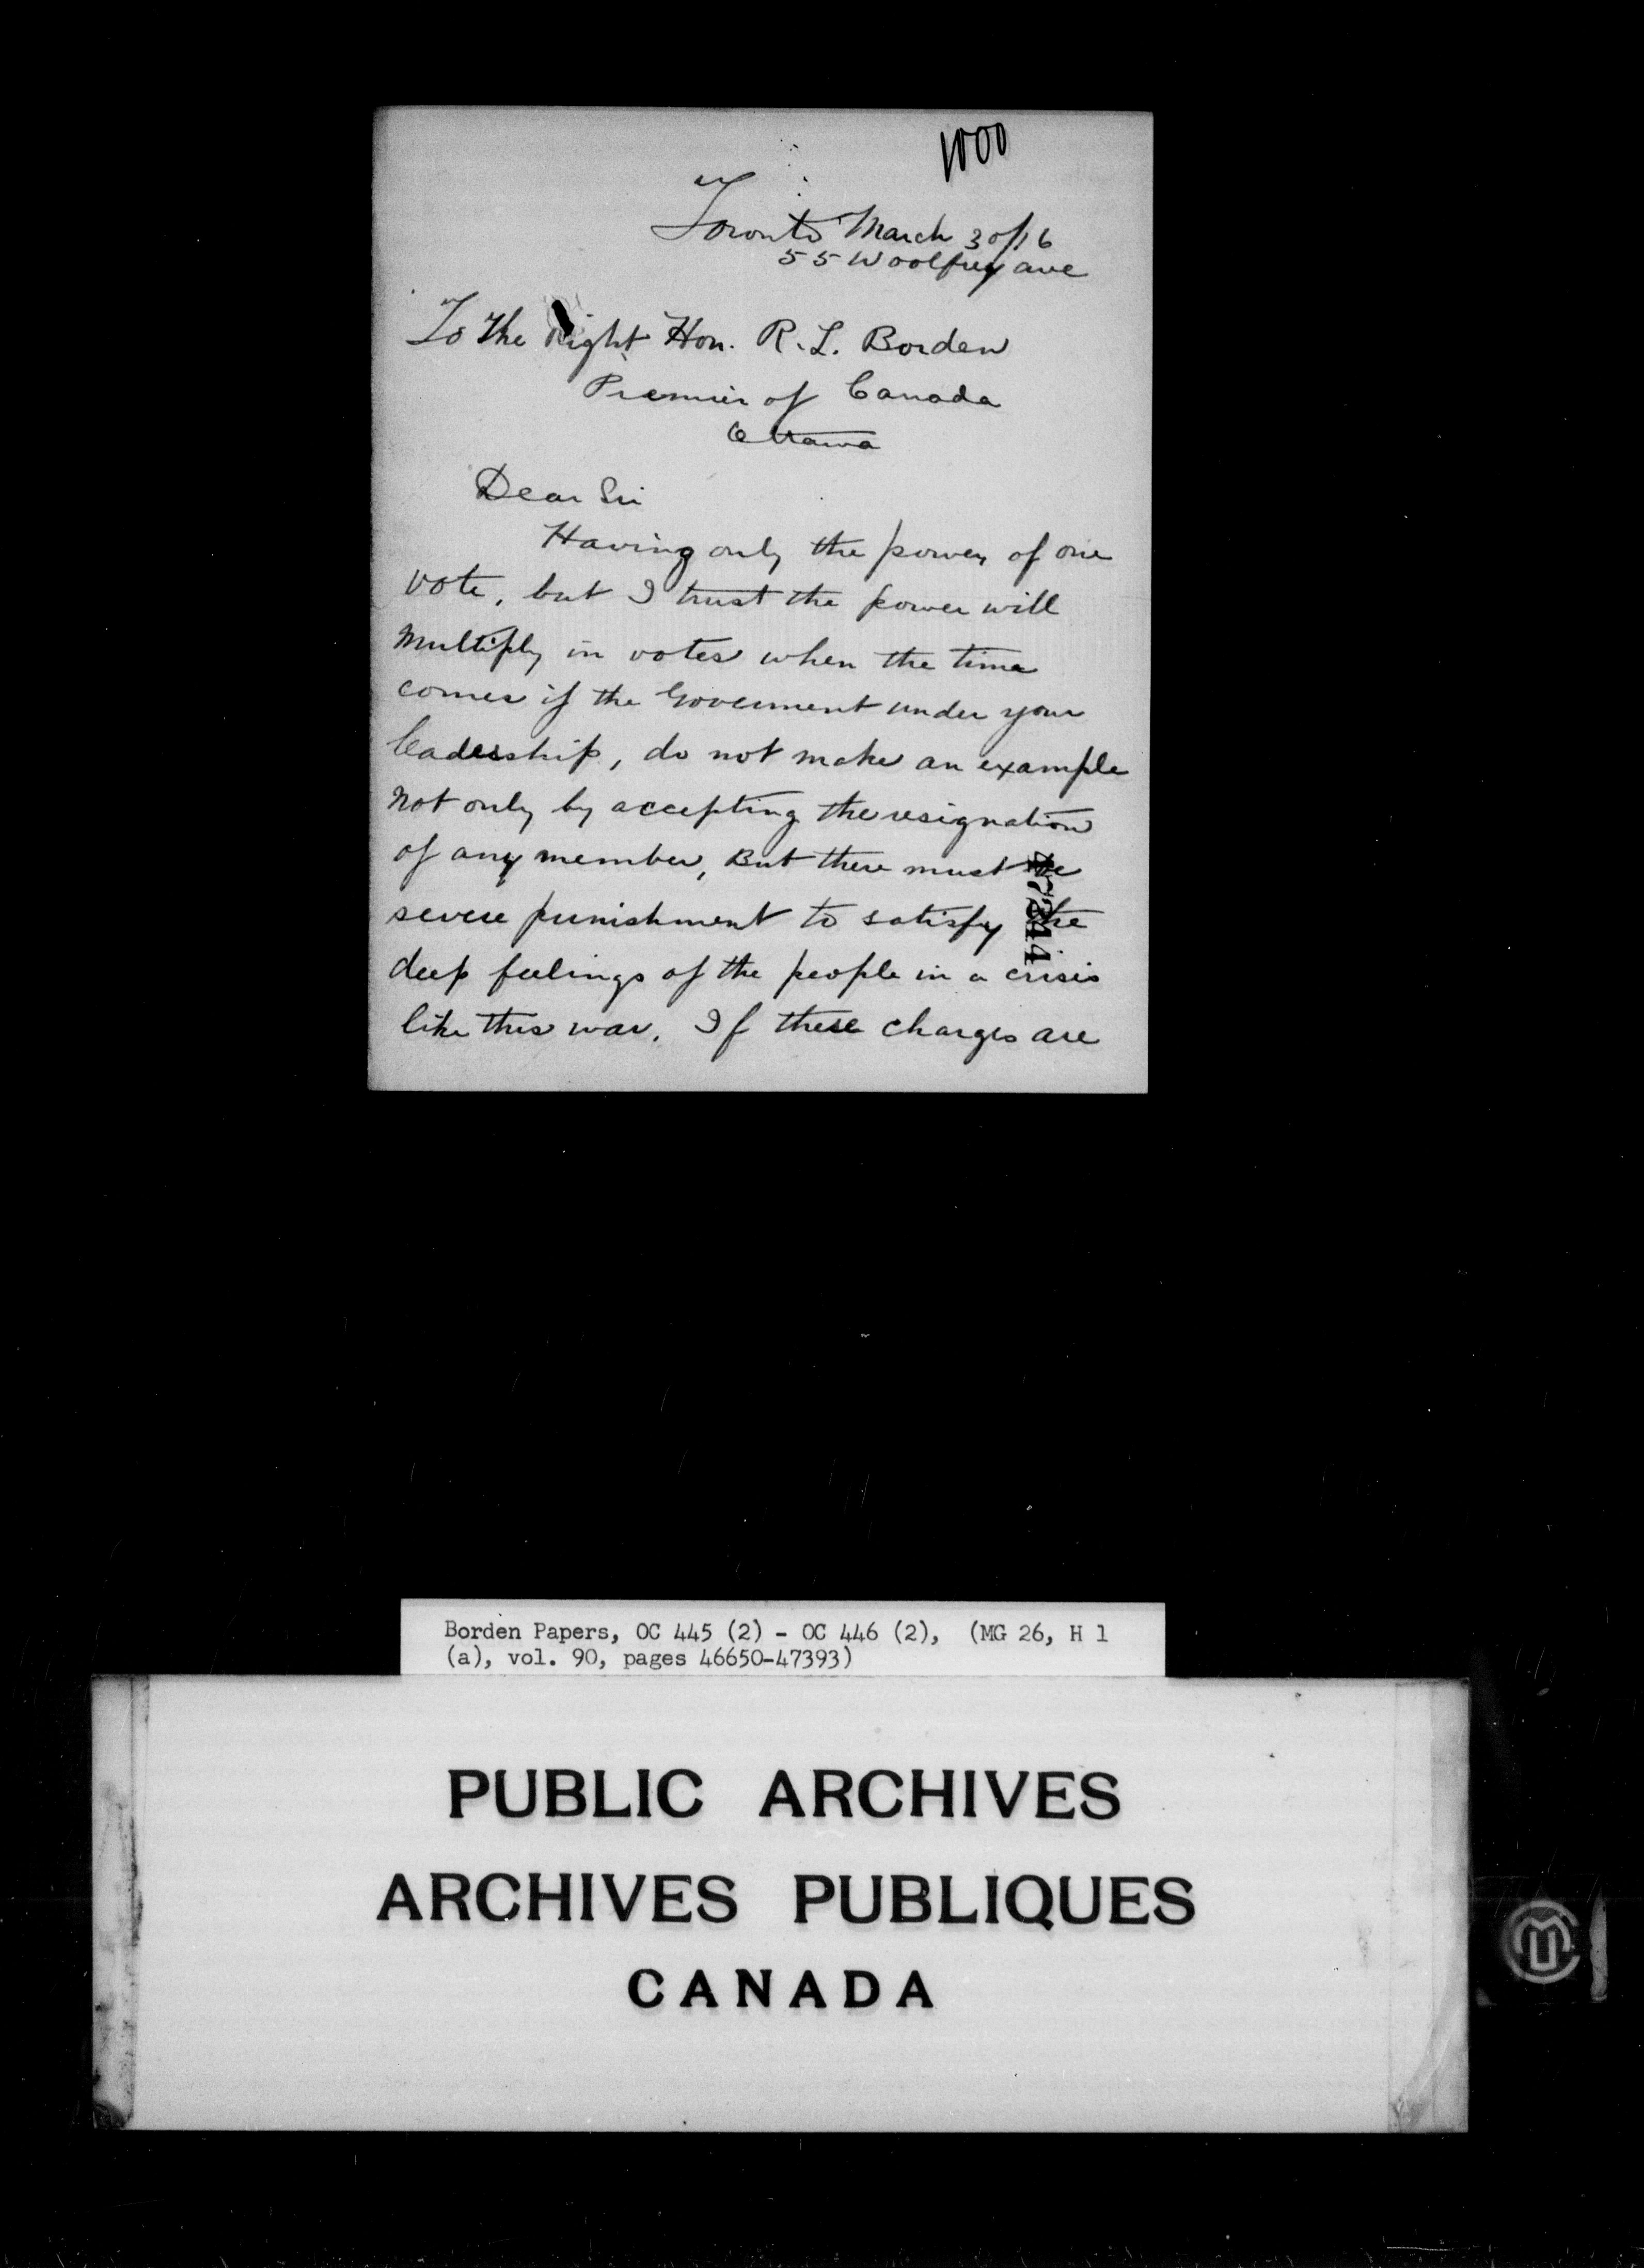 1000
Toronto March 30/16
55 Woolfrey ave
To the Right Hon. R. L. Borden
Premier of Canada
Ottawa
Dear Sir
Having only the power of one
vote, but I trust the power will
Multiply in votes when the time
comes if the Goverment under your
leadership, do not make an example
Not only by accepting the resignation
of any member, But there must be
severe punishment to satisfy the
deep feelings of the people in a crisis
like this war. If these charges are
47244
Borden Papers, OC 445 (2) - OC 446 (2), (MG 26, H 1
(a), vol. 90, pages 46650-47393)
PUBLIC ARCHIVES
ARCHIVES PUBLIQUES
CANADA